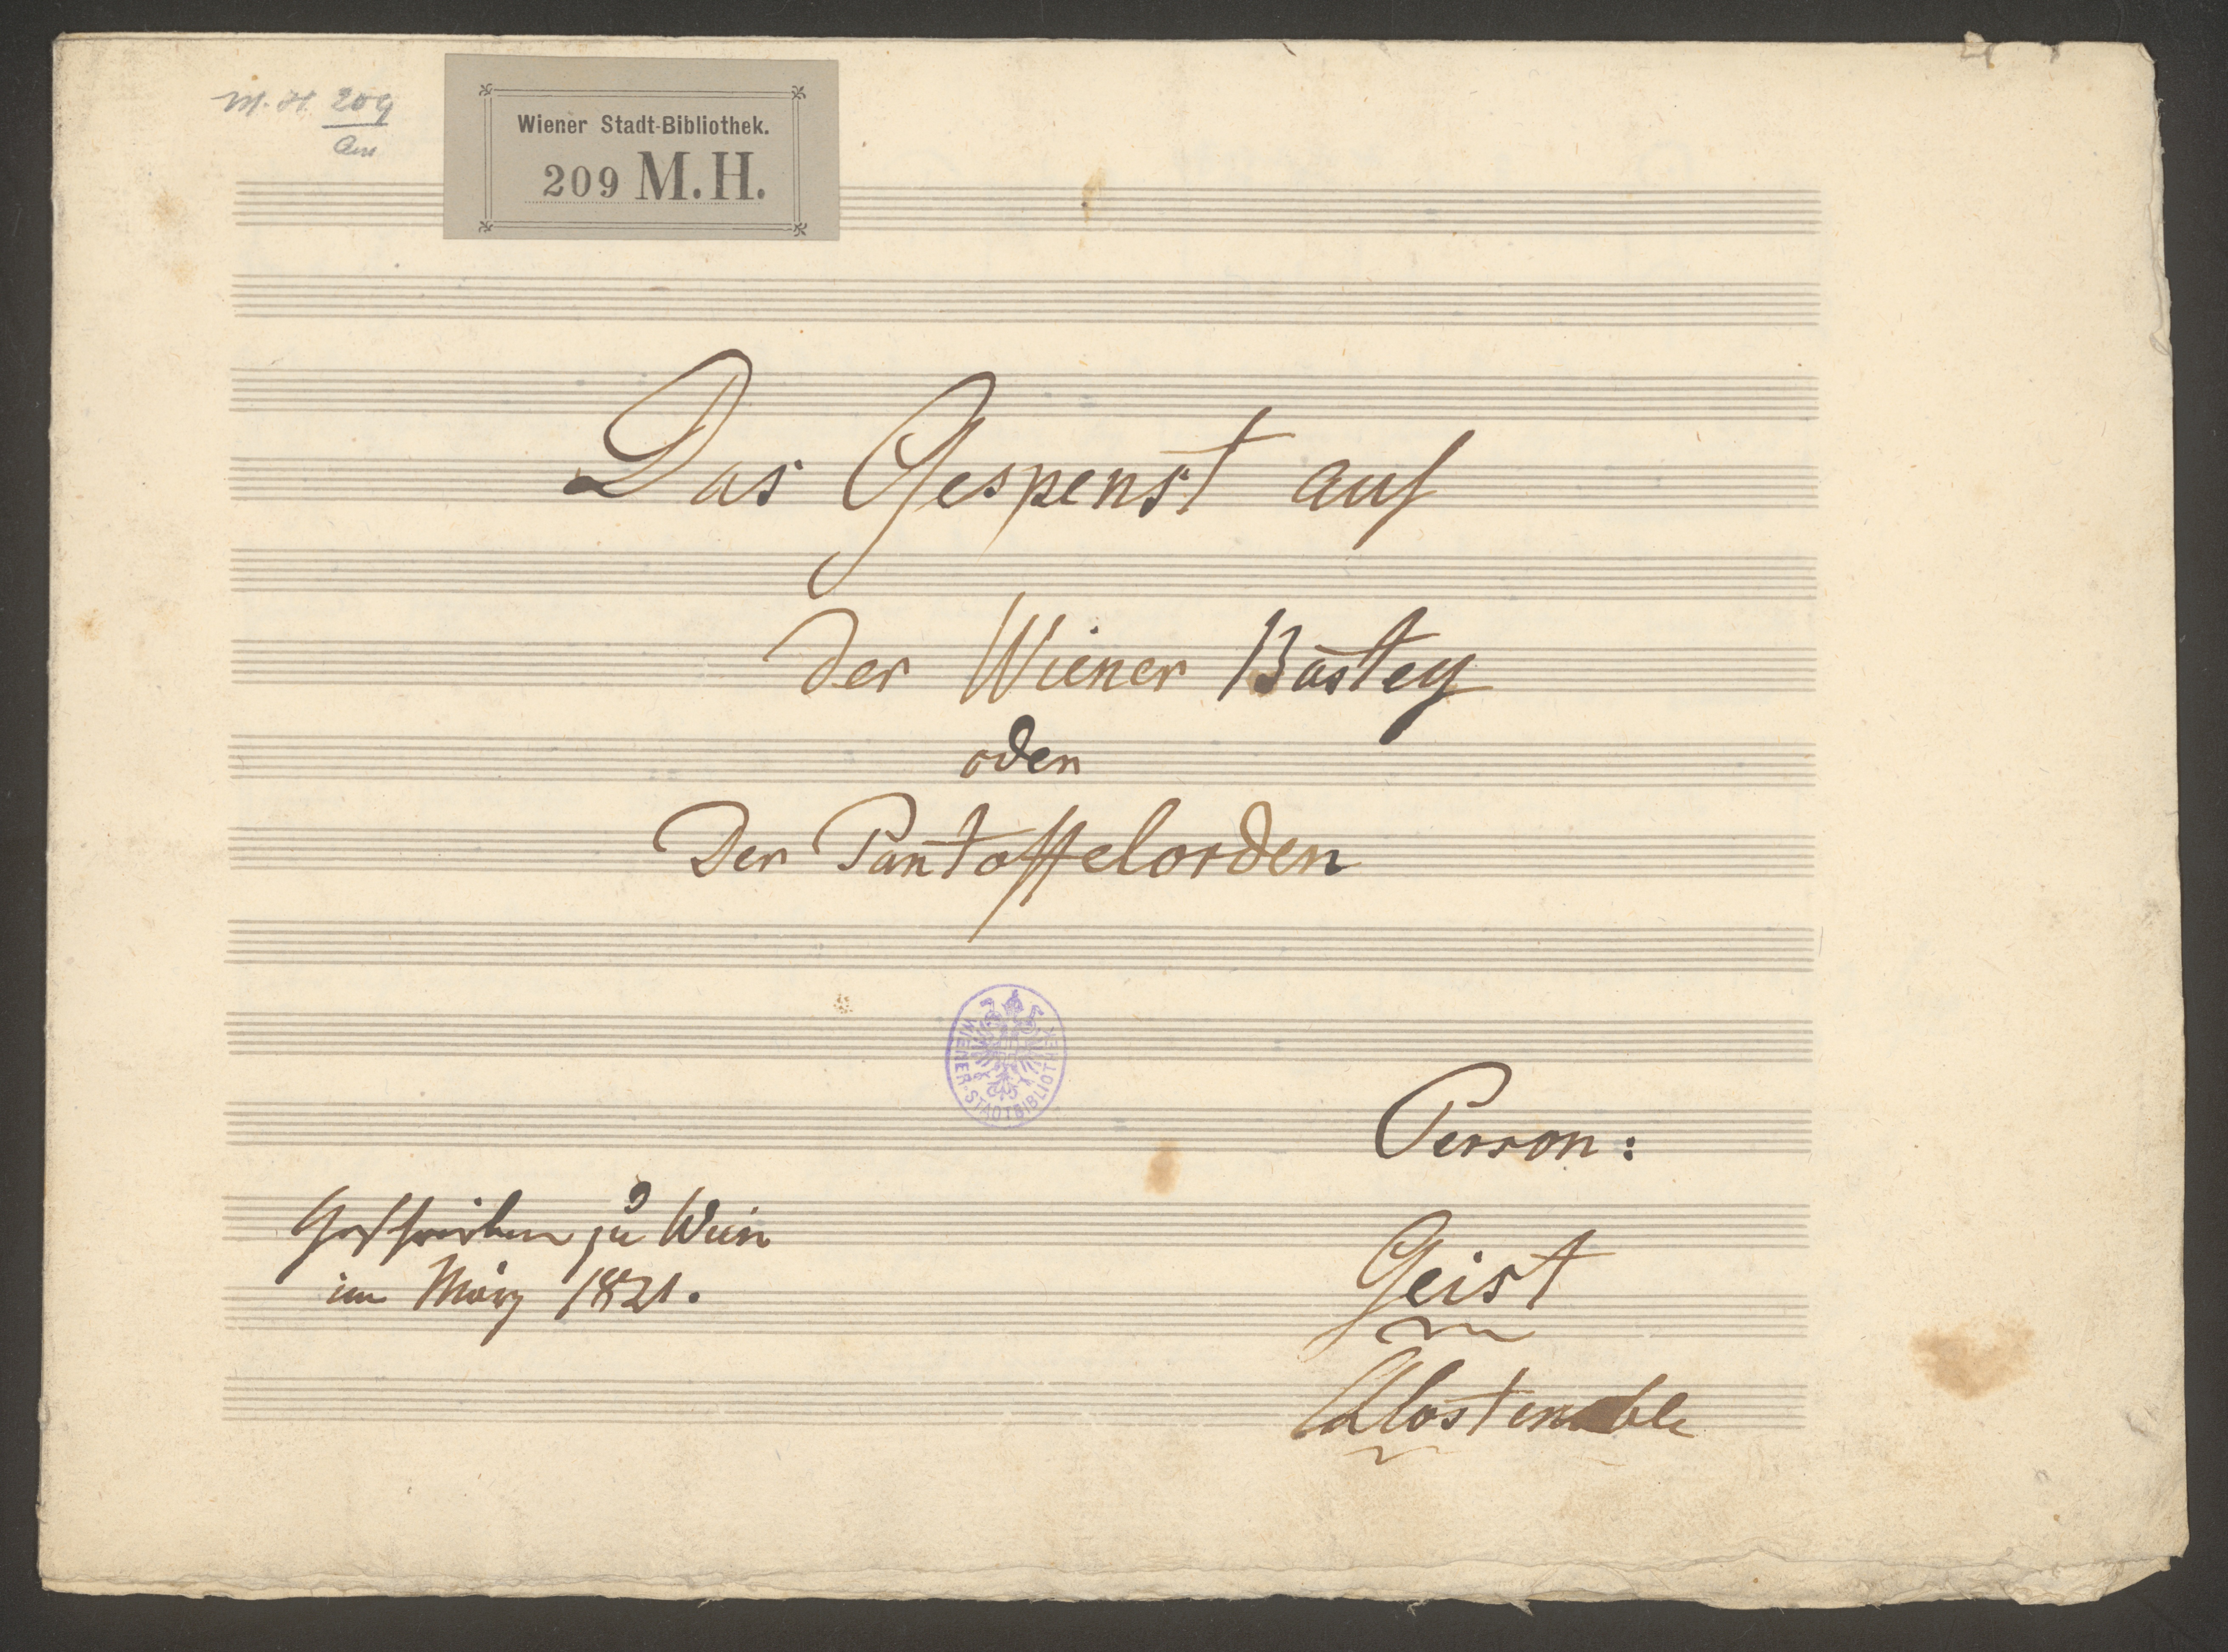 M. H. 209
Wiener Stadt-Bibliothek.
209 M.H.
Das Gespenst auf
der Wiener Bastey
oder
Der Pantoffelorden
WIENER-STADTBIBLIOTHEK
Person:
Geist
Geschrieben zu Wien
im März 1821.